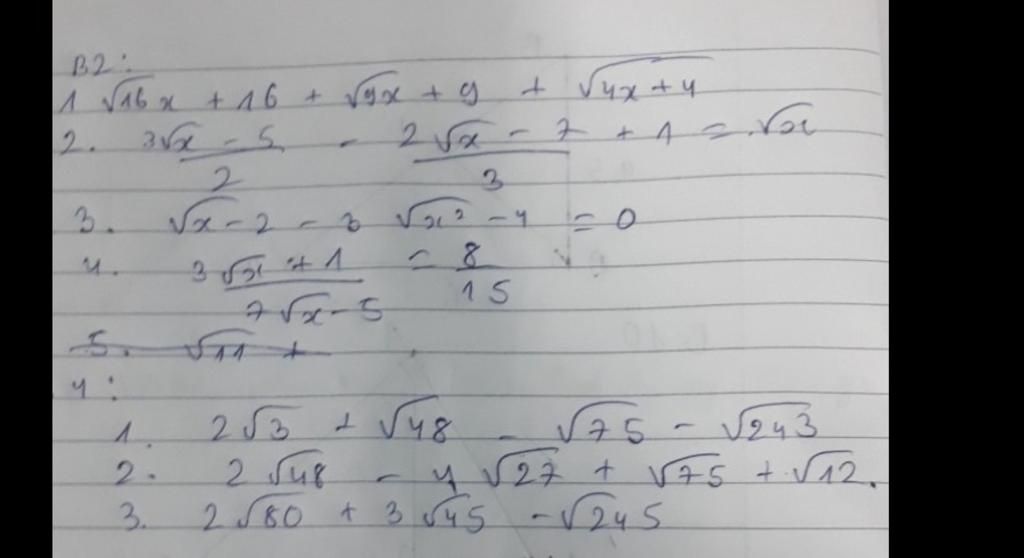 B2:
1 √16x + 16 + √9x + 9 + √4x + 4
2. 3√x - 5 / 2 - 2√x - 7 / 3 + 1 = √x
3. √x - 2 - 3 √x² - 4 = 0
4. 3√x + 1 / 7√x - 5 = 8 / 15
5. √11 +
4:
1. 2√3 + √48 - √75 - √243
2. 2√48 - 4√27 + √75 + √12.
3. 2√80 + 3√45 - √245